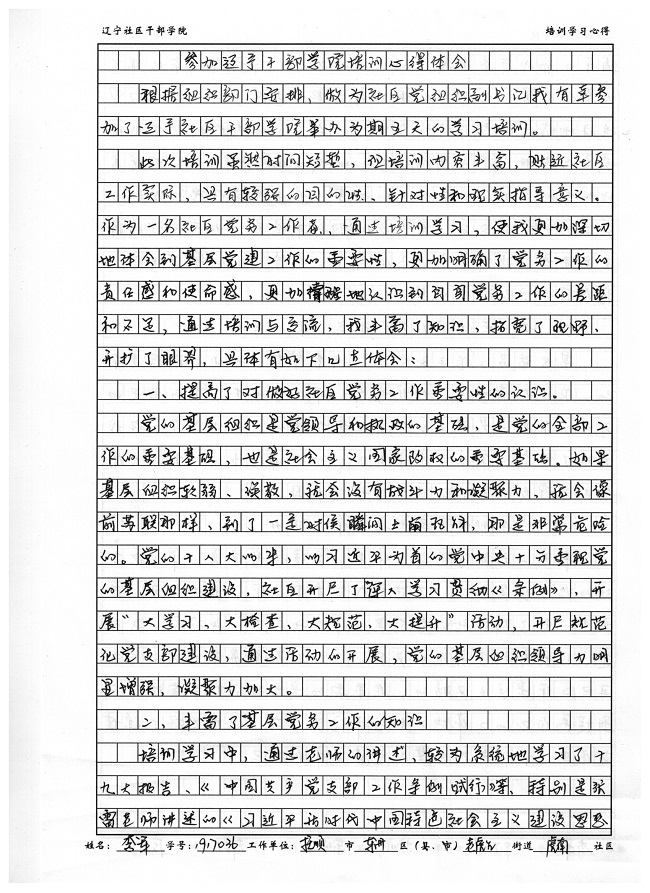 辽宁社区干部学院 培训学习心得
参加辽宁干部学院培训心得体会
根据组织部门安排，做为社区党组织副书记我有幸参
加了辽宁社区干部学院举办为期五天的学习培训。
此次培训虽然时间短暂，但培训内容丰富，贴近社区
工作实际，具有较强的目的性、针对性和现实指导意义。
作为一名社区党务工作者，通过培训学习，使我更加深切
地体会到基层党建工作的重要性，更加明确了党务工作的
责任感和使命感，更加清醒地认识到自身党务工作的差距
和不足，通过培训与交流，我丰富了知识，拓宽了视野，
开扩了眼界，具体有如下几点体会：
一、提高了对做好社区党务工作重要性的认识。
党的基层组织是党领导和执政的基础，是党的全部工
作的重要基础，也是社会主义国家政权的重要基础。如果
基层组织软弱、涣散，就会没有战斗力和凝聚力，就会像
前苏联那样，到了一定时候瞬间土崩瓦解，那是非常危险
的。党的十八大以来，以习近平为首的党中央十分重视党
的基层组织建设，社区开展了深入学习贯彻《条例》，开
展“大学习、大检查、大规范、大提升”活动，开展规范
化党支部建设，通过活动的开展，党的基层组织领导力明
显增强，凝聚力加大。
二、丰富了基层党务工作的知识
培训学习中，通过老师的讲述，较为系统地学习了十
九大报告、《中国共产党支部工作条例试行》等，特别是张
雷老师讲述的《习近平新时代中国特色社会主义建设思想
姓名：李军 学号：1917036 工作单位：抚顺 市 区（县、市） 街道 虎南 社区